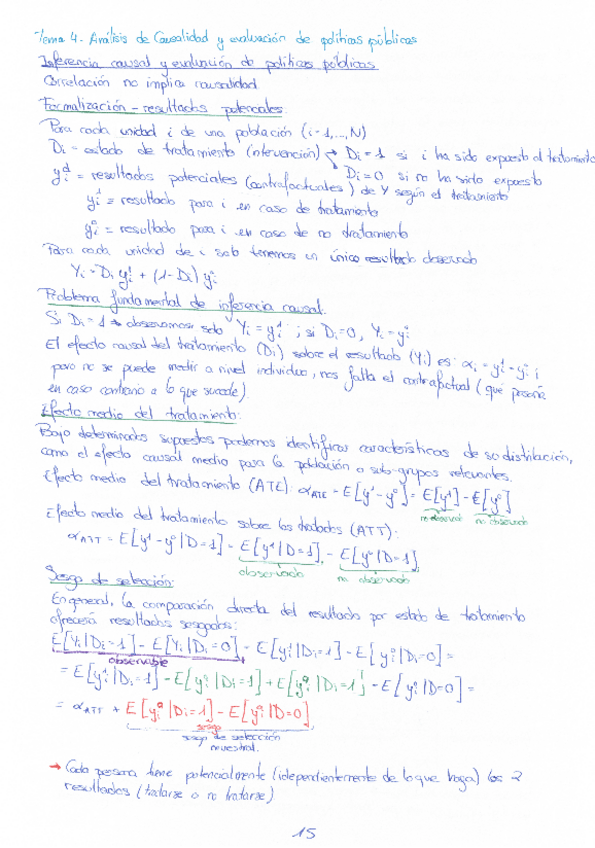 Tema 4. Análisis de Causalidad y evaluación de políticas públicas
Inferencia causal y evaluación de políticas públicas
Correlación no implica causalidad
Formalización - resultados potenciales
Para cada unidad i de una población (i=1,...,N)
Di = estado de tratamiento (intervención) → Di = 1 si i ha sido expuesto al tratamiento
Di = 0 si no ha sido expuesto
yᵢᵈ = resultados potenciales (contrafactuales) de Y según el tratamiento
yᵢ¹ = resultado para i en caso de tratamiento
yᵢ⁰ = resultado para i en caso de no tratamiento
Para cada unidad de i solo tenemos un único resultado observado
Yi = Di yᵢ¹ + (1-Di) yᵢ⁰
Problema fundamental de inferencia causal.
Si Di = 1 → observamos solo Yi = yᵢ¹ ; si Di=0, Yi = yᵢ⁰
El efecto causal del tratamiento (Di) sobre el resultado (Yi) es: αi = yᵢ¹ - yᵢ⁰ ;
pero no se puede medir a nivel individuo, nos falta el contrafactual (qué pasaría
en caso contrario a lo que sucede).
Efecto medio del tratamiento:
Bajo determinados supuestos podemos identificar características de su distribución,
como el efecto causal medio para la población o sub-grupos relevantes.
Efecto medio del tratamiento (ATE): αATE = E[y¹ - y⁰] = E[y¹] - E[y⁰]
no observado no observado
Efecto medio del tratamiento sobre los tratados (ATT):
αATT = E[y¹ - y⁰|D=1] = E[y¹|D=1] - E[y⁰|D=1]
observado no observado
Sesgo de selección:
En general, la comparación directa del resultado por estado de tratamiento
ofrecerá resultados sesgados:
E[Yi|Di=1] - E[Yi|Di=0] = E[yᵢ¹|Di=1] - E[yᵢ⁰|Di=0] =
observable
= E[yᵢ¹|Di=1] - E[yᵢ⁰|Di=1] + E[yᵢ⁰|Di=1] - E[yᵢ⁰|D=0] =
= αATT + E[yᵢ⁰|Di=1] - E[yᵢ⁰|D=0]
sesgo
sesgo de selección
muestral.
→ Cada persona tiene potencialmente (independientemente de lo que haga) los 2
resultados (tratarse o no tratarse)
15